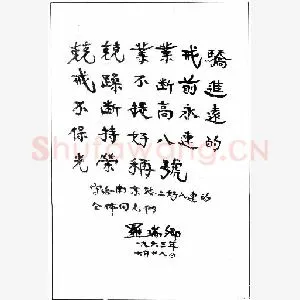 兢兢業業戒驕
戒躁不斷前進
不斷提高永遠
保持好八連的
光榮稱號
南京路上好八連的
全体同志們
羅瑞卿
一九六三年
Shufawang.CN